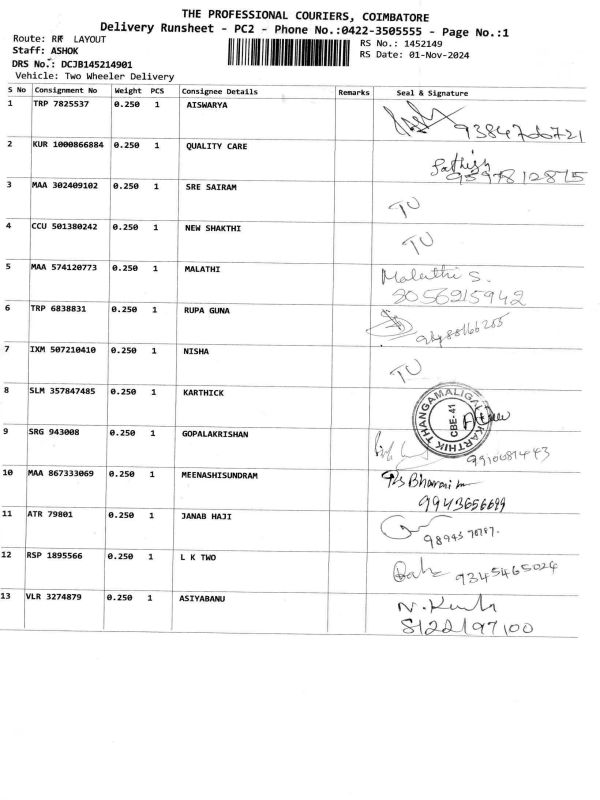 THE PROFESSIONAL COURIERS, COIMBATORE
Delivery Runsheet - PC2 - Phone No.:0422-3505555 - Page No.:1
Route: RR LAYOUT
RS No.: 1452149
Staff: ASHOK
RS Date: 01-Nov-2024
DRS No.: DCJB145214901
Vehicle: Two Wheeler Delivery
S No Consignment No Weight PCS Consignee Details Remarks Seal & Signature
1 TRP 7825537 0.250 1 AISWARYA
9384706721
2 KUR 1000866884 0.250 1 QUALITY CARE
Sathish
9597812875
3 MAA 302409102 0.250 1 SRE SAIRAM
TU
4 CCU 501380242 0.250 1 NEW SHAKTHI
TU
5 MAA 574120773 0.250 1 MALATHI
Malathi S.
8056915942
6 TRP 6838831 0.250 1 RUPA GUNA
7 IXM 507210410 0.250 1 NISHA
TU
8 SLM 357847485 0.250 1 KARTHICK
KARTHIK THANGAMALIGAI
CBE-41
9 SRG 943008 0.250 1 GOPALAKRISHAN
10 MAA 867333069 0.250 1 MEENASHISUNDRAM
9943656699
11 ATR 79801 0.250 1 JANAB HAJI
12 RSP 1895566 0.250 1 L K TWO
9345465024
13 VLR 3274879 0.250 1 ASIYABANU
8122197100